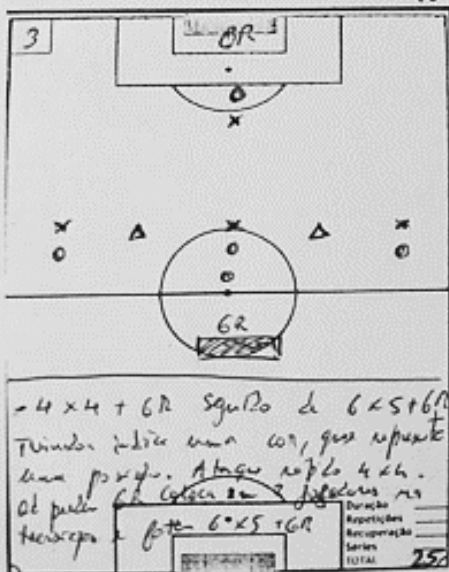 3
GR
GR
- 4 x 4 + GR seguido de 6 x 5 + GR
Treinador indica uma cor, que representa
uma posição. Ataque rápido 4x4.
GR coloca em jogadores na
e fazem 6 x 5 + GR
Duração
Repetições
Recuperação
Series
TOTAL 25'